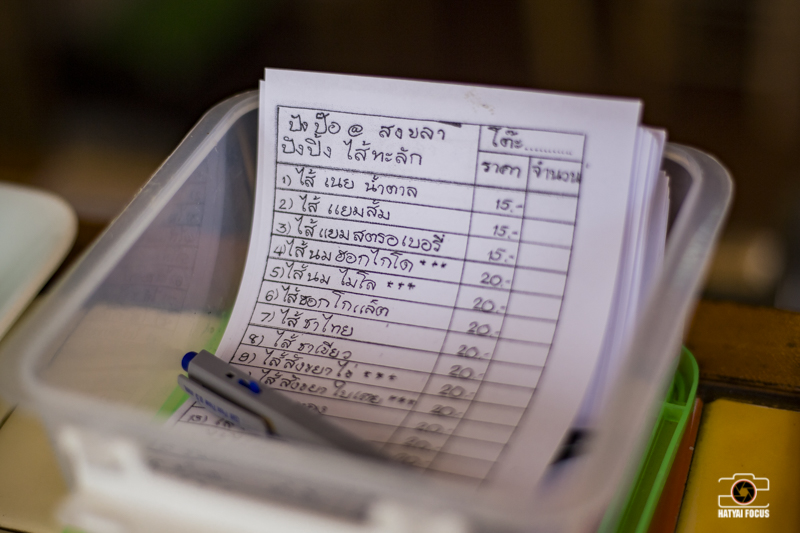 ปังปอ @ สงขลา
ปังปิ้ง ไส้ทะลัก
โต๊ะ..........
ราคา จำนวน
1) ไส้ เนย น้ำตาล 15.-
2) ไส้ แยมส้ม 15.-
3) ไส้แยมสตรอเบอรี่ 15.-
4) ไส้นมฮอกไกโด *** 20.-
5) ไส้นม ไมโล *** 20.-
6) ไส้ชอกโกแล็ต 20.-
7) ไส้ชาไทย 20.-
8) ไส้ชาเขียว 20.-
9) ไส้สังขยาไข่ *** 20.-
ไส้สังขยาใบเตย *** 20.-
20.-
20.-
HATYAI FOCUS